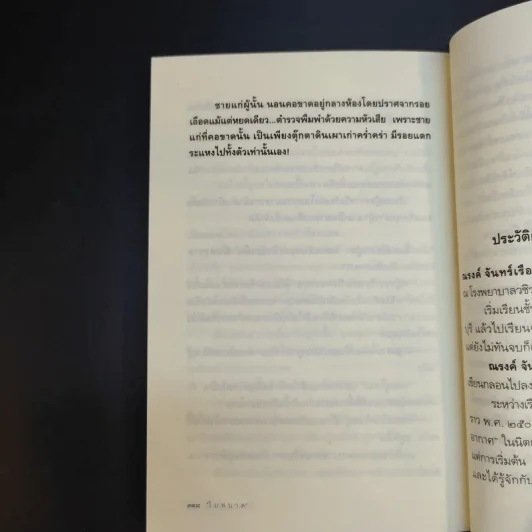 ชายแก่ผู้นั้น นอนคอขาดอยู่กลางห้องโดยปราศจากรอย
เลือดแม้แต่หยดเดียว...ตำรวจพึมพำด้วยความหัวเสีย เพราะชาย
แก่ที่คอขาดนั้น เป็นเพียงตุ๊กตาดินเผาเก่าคร่ำคร่า มีรอยแตก
ระแหงไปทั้งตัวเท่านั้นเอง!
ประวัติ
ณรงค์ จันทร์เรือ
ณ โรงพยาบาลวชิร
เริ่มเรียนชั้
บุรี แล้วไปเรียน
แต่ยังไม่ทันจบก็
ณรงค์ จัน
เขียนกลอนไปลง
ระหว่างเรี
ราว พ.ศ. ๒๕๐
อากาศ" ในนิต
แต่การเริ่มต้น
และได้รู้จักกับ